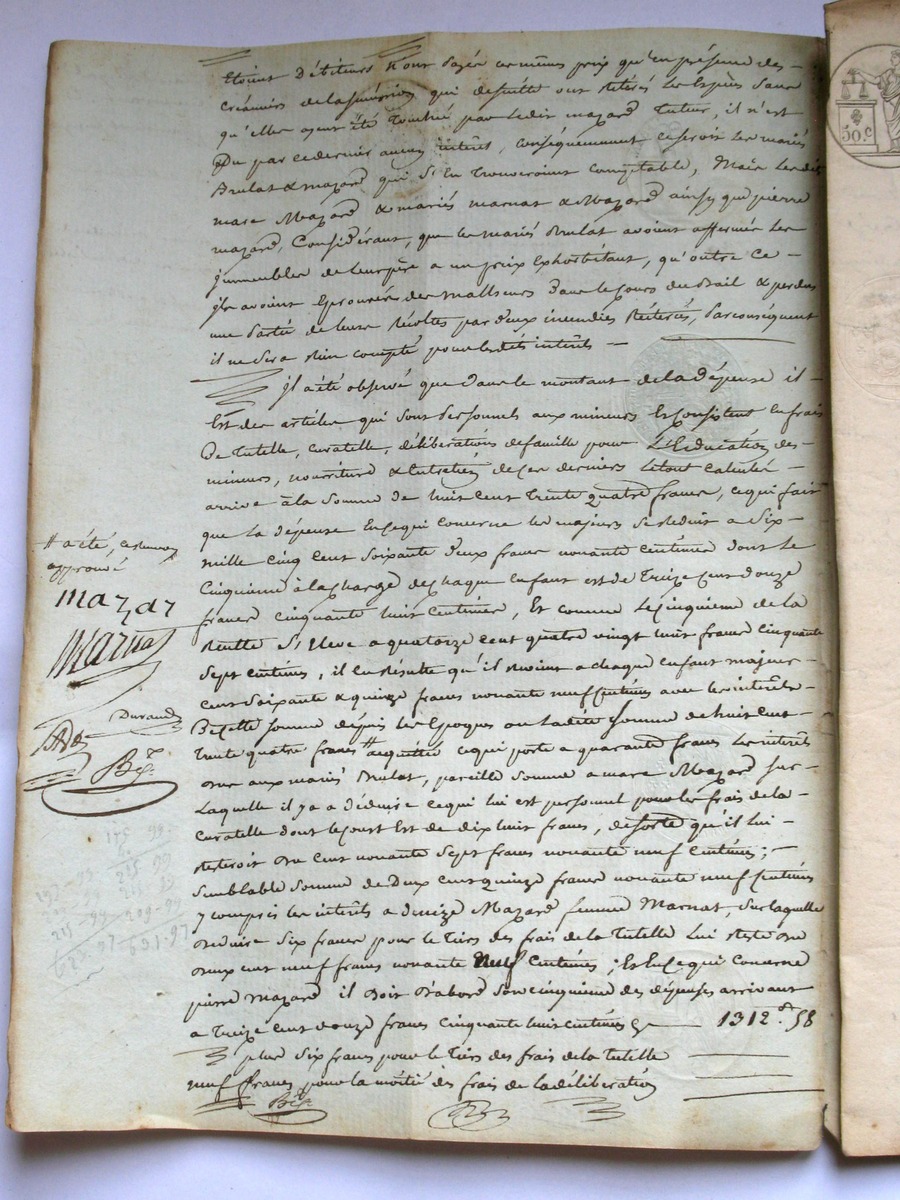 Etoient Débiteurs n'ont payér ce même prix qu'en présence des
créanciers de la succession qui de suitte ont retirés les Espèces Sans
qu'elles ayent été touchée par Ledit mazard Tuteur, il n'est
Du par ce dernier aucun interêt, conséquemment ce seroit Les mariés
Brulat & mazard qui s'en trouveroint comptable, Mais Lesdits
marc Mazard & mariés marnat & Mazard ainsy que pierre
mazard, Considérant, que les mariés Brulat avoint affermée Les
jmmeubles de leur père a un prix Exhorbitant, qu'outre Ce
jls avoint Eprouvés des malheurs dans le cours du Bail & perdus
une Partie de leurs Récoltes par deux incendies Réiterés, Par conséquent
il ne Sera Rien compté pour lesdits intérêts
jl a été observé que Dans le montant de la dépense il
Est des articles qui sont Personnels aux mineurs Et consistent En frais
De Tutelle, curatelle, délibérations de famille pour L'Education des
mineurs, nourriture & Entretien de ces derniers Le tout calculér
arrive à la Somme de huit cent Trente quatre francs, ce qui fait
que la dépense En ce qui concerne les majeurs Se Réduit a Six
mille cinq cent soixante deux francs nonante centimes dont le
Cinquième à la charge de chaque Enfant est de Treize cent douze
francs cinquante huit centimes, Et comme Le cinquième de la
Recette S'éleve a quatorze cent quatre vingt huit francs cinquante
Sept centimes, il En Résulte qu'il Revient a chaque Enfant majeur
cent soixante & quinze francs nonante neuf Centimes avec les intérêts
De cette somme dépuis les Epoques ou Ladite Somme de huit cent
trente quatre francs # acquittée ce qui porte a quarante francs Les intérêts
Dus aux mariés Brulat, pareille somme a marc Mazard sur
Laquelle il y a a déduire ce qui lui est personnel pour les frais de la
Curatelle dont Le coust Est de dix huit francs, de sorte qu'il Lui
Resteroit Du Cent nonante Sept francs nonante neuf Centimes;
Semblable Somme de Deux Cent quinze francs nonante neuf Centimes
y compris les intérêts a denize Mazard femme Marnat, sur laquelle
Déduire Six francs pour le Tiers des frais de la Tutelle Lui Reste Du
Deux cent neuf francs nonante Neuf Centimes; Et En ce qui concerne
pierre Mazard il Doit D'abord Son cinquième des dépenses arrivant
a Treize cent douze francs cinquante huit centimes Cy 1312.f 58
plus Six francs pour le Tiers des frais de la Tutelle
neuf francs pour la moitié des frais de la délibération
# a été, ce renvoy
approuvé
mazar
Marnat
Durand
50.c